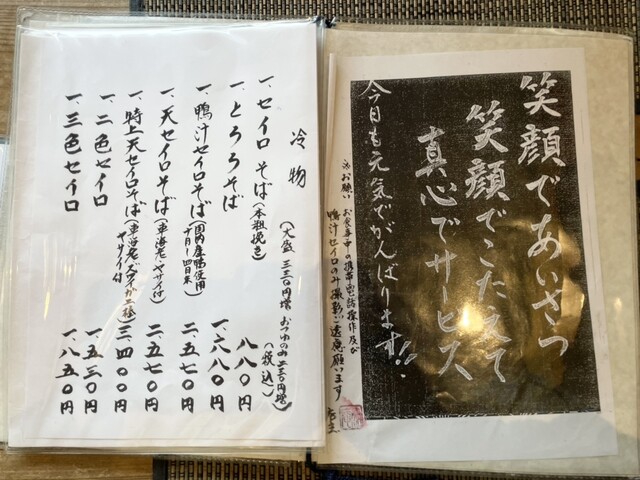 笑顔であいさつ
笑顔でこたえて
真心でサービス
今日も元気でがんばります!!
※お願い お食事中の携帯電話操作及び
鴨汁セイロのみ撮影ご遠慮願います 店主
冷物 (大盛 三三〇円増 おつゆのみ二二〇円増)
(税込)
一、セイロそば(本粗挽き) 八八〇円
一、とろろそば
一、鴨汁セイロそば(国内産鴨使用 二、五七〇円
一、天セイロそば(車海老・ヤサイ付) 二、五七〇円
一、特上天セイロそば(車海老・ズワイガニ 三、四〇〇円
ヤサイ付)
一、二色セイロ 一、五三〇円
一、三色セイロ 一、八五〇円